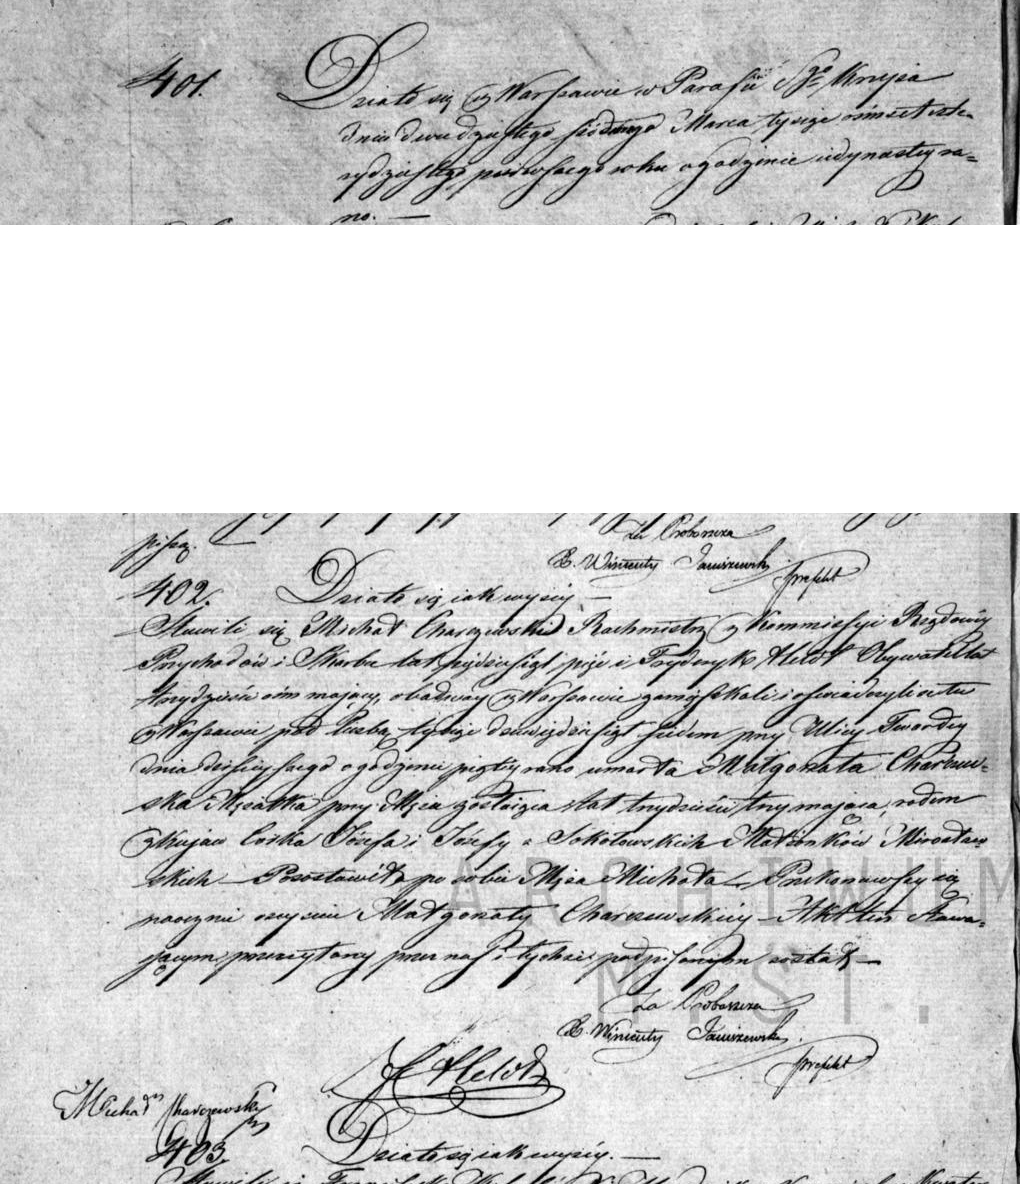 401. Działo się w Warszawie w Parafii Sgo Krzyża
dnia dwudziestego siódmego Marca tysiąc ośmset czte-
rydziestego pierwszego roku o godzinie jedynastey ra-
no. —
piszą. —
Za Proboszcza
X. Wincenty Januszewski
prefekt
402. Działo się iak wyżey —
Stawili się Michał Charczewski Rachmistrz z Kommissyi Rządowey
Przychodów i Skarbu lat pięćdziesiąt pięć i Fryderyk Helót Obywatel lat
trzydzieści ośm maiący, obadway w Warszawie zamieszkali i oświadczyli iż tu
w Warszawie pod liczbą tysiąc dziewięćdziesiąt siedem przy Ulicy Twardey
dnia dzisieyszego o godzinie piątey rano umarła Małgorzata Charczew-
ska Mężatka przy Mężu zostaiąca lat trzydzieści trzy maiąca, rodem
z Kujaw Córka Józefa i Józefy z Sokołowskich Małżonków Mirosław-
skich — Pozostawiła po sobie Męża Michała — Przekonawszy się
naocznie o zeyściu Małgorzaty Charczewskiey — Akt ten Stawa-
jącym przeczytany przez nas i tychże podpisanym został —
Za Proboszcza
X. Wincenty Januszewski
prefekt
Helót
Michał Charczewski
403. Działo się iak wyżey. —
Stawili się
ARCHIWUM
M. ST.